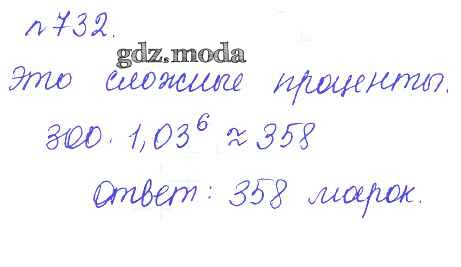 n 732.
gdz.moda
Это сложные проценты.
300 · 1,03⁶ ≈ 358
Ответ: 358 марок.